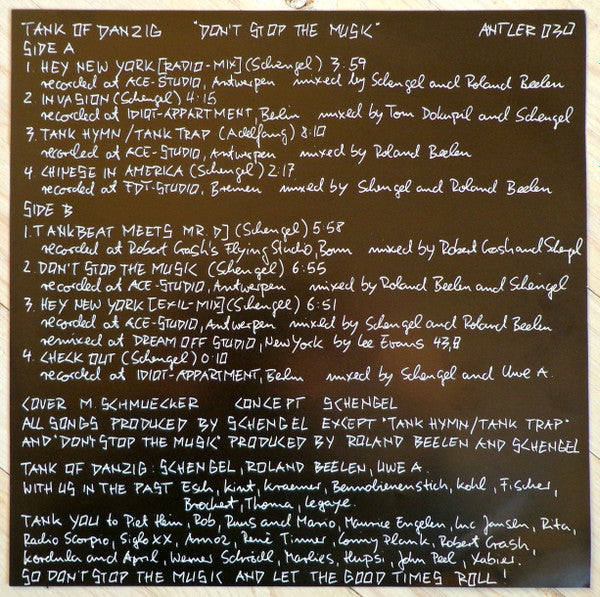 TANK OF DANZIG "DON'T STOP THE MUSIK" ANTLER 030
SIDE A
1. HEY NEW YORK [RADIO-MIX] (Schengel) 3:59
recorded at ACE-STUDIO, Antwerpen mixed by Schengel and Roland Beelen
2. INVASION (Schengel) 4:15
recorded at IDIOT-APPARTMENT, Berlin mixed by Tom Dokupil and Schengel
3. TANK HYMN/TANK TRAP (Adelfang) 8:10
recorded at ACE-STUDIO, Antwerpen mixed by Roland Beelen
4. CHINESE IN AMERICA (Schengel) 2:17
recorded at FDT-STUDIO, Bremen mixed by Shengel and Roland Beelen
SIDE B
1. TANKBEAT MEETS MR. D] (Schengel) 5:58
recorded at Robert Crash's Flying Studio, Bonn mixed by Robert Crash and
2. DON'T STOP THE MUSIC (Shengel) 6:55
recorded at ACE-STUDIO, Antwerpen mixed by Roland Beelen and Schengel
3. HEY NEW YORK [EXIL-MIX] (Schengel) 6:51
recorded at ACE-STUDIO, Antwerpen mixed by Schengel and Roland Beelen
remixed at DREAM OFF STUDIO, New York by Lee Evans 43,8
4. CHECK OUT (Schengel) 0:10
recorded at IDIOT-APPARTMENT, Berlin mixed by Schengel and Uwe A.
COVER M. SCHMUECKER CONCEPT SCHENGEL
ALL SONGS PRODUCED BY SCHENGEL EXCEPT "TANK HYMN/TANK TRAP"
AND "DON'T STOP THE MUSIK" PRODUCED BY ROLAND BEELEN AND SCHENGEL
TANK OF DANZIG: SCHENGEL, ROLAND BEELEN, UWE A.
WITH US IN THE PAST Esch, Kint, Kraemer, Bennodienenstich, Kohl, Fischer,
Brochert, Thoma, Legaye.
TANK YOU to Piet Hein, Rob, and Mario, Maurice Engelen, Luc Jansen, Rita,
Radio Scorpio, Siglo XX, Arno2, René Tinner, Conny Plank, Robert Crash,
Kordula and April, Werner Schrödl, Marlies, Hupsi, John Peel, Xabier.
SO DON'T STOP THE MUSIC AND LET THE GOOD TIMES ROLL!